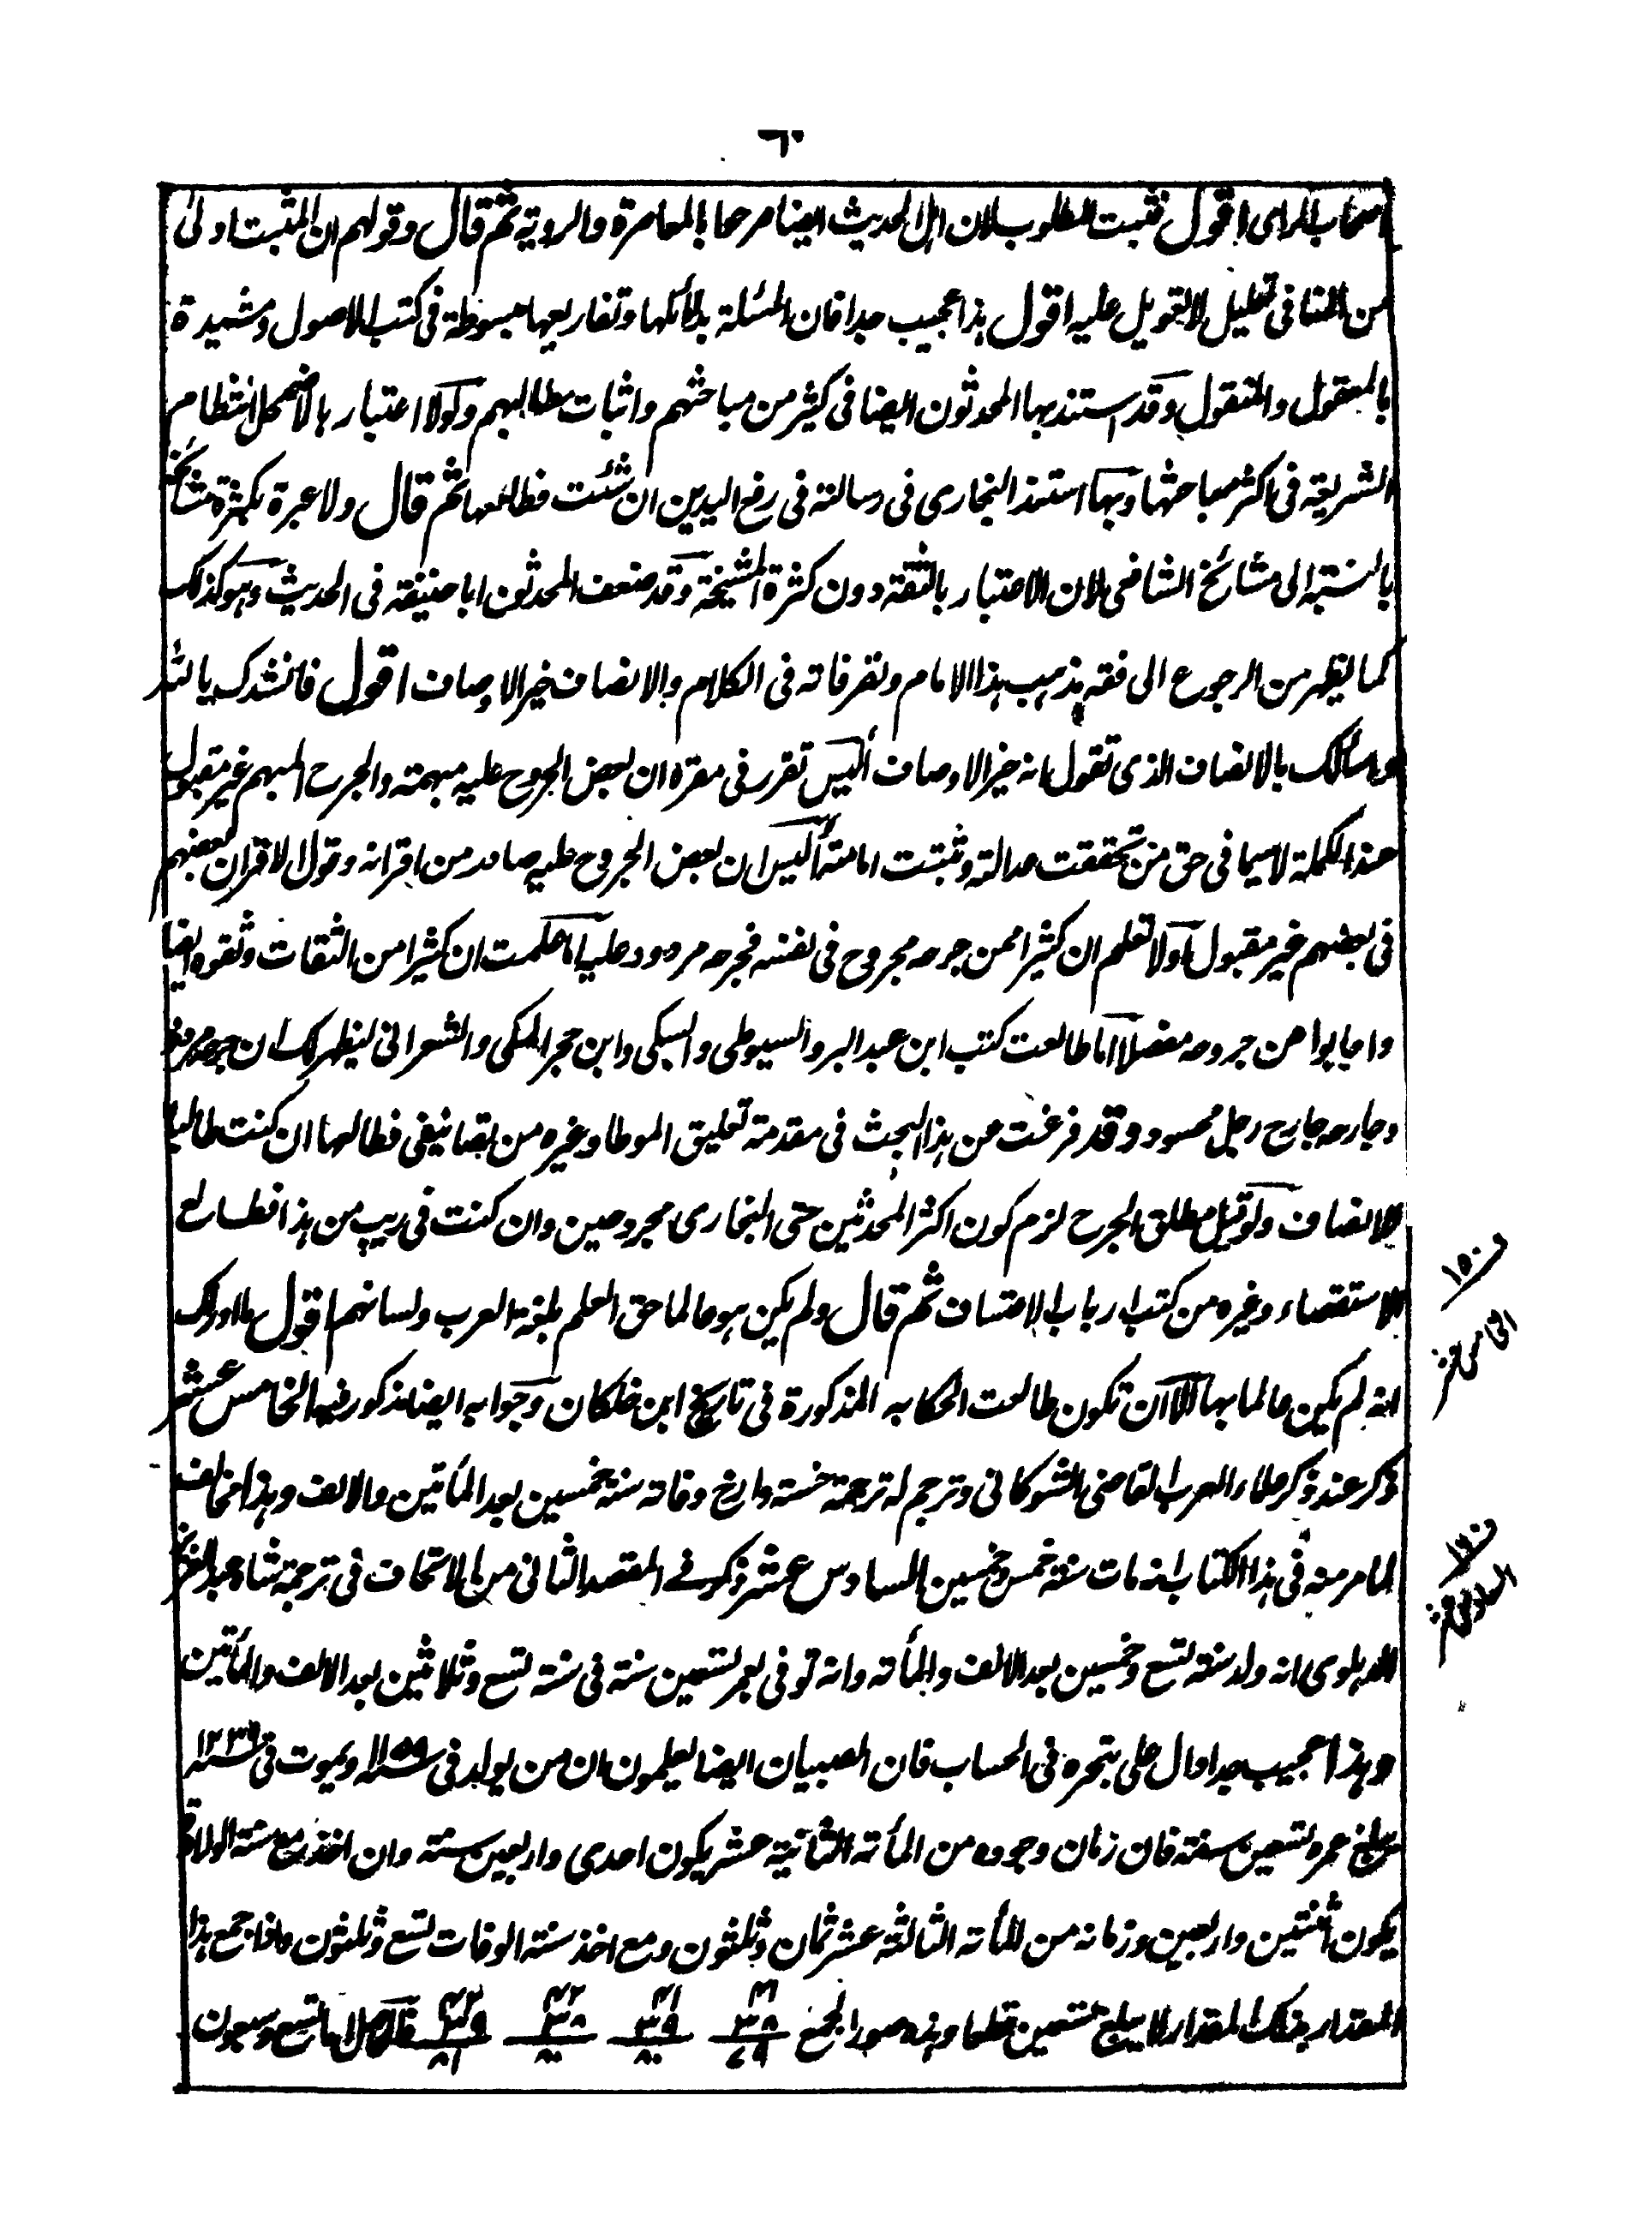 ٦٠
اصحاب الرای اقول فثبت المطلوب لان اہل الحدیث ایضا صرحا بالمعاصرة والرویة ثم قال وقولهم ان المثبت اولی
من النافی تعلیل لا تعویل علیه اقول ہذا عجیب جدا فان المسئلة بدلائلها وتفاریعها مبسوطة فی کتب الاصول ومشیدة
بالمعقول والمنقول وقد استند بها المحدثون ایضا فی کثیر من مباحثهم واثبات مطالبهم ولولا اعتبارہا لاضمحل انتظام
الشریعة فی اکثر مباحثها وبها استند البخاری فی رسالته فی رفع الیدین ان شئت فطالعها ثم قال ولا عبرة بکثرة مشائخه
بالنسبة الی مشائخ الشافعی لان الاعتبار بالثقة دون کثرة المشیخة وقد ضعف المحدثون ابا حنیفة فی الحدیث وہو کذلک
کما یظهر من الرجوع الی فقه مذہب ہذا الامام وتفرقاته فی الکلام والانصاف خیر الاوصاف اقول فانشدک بالله
واسالک بالانصاف الذی تقول انه خیر الاوصاف ألیس تقرر فی مقره ان بعض الجروح علیه مبهمة والجرح المبهم غیر مقبول
عند الکملة لا سیما فی حق من تحققت عدالته وثبتت امامته ألیس ان بعض الجروح علیه صادر من اقرانه وقول الاقران بعضهم
فی بعضهم غیر مقبول أولا تعلم ان کثیرا ممن جرحه مجروح فی نفسه فجرحه مردود علیه أما علمت ان کثیرا من الثقات وثقوه ایضا
واجابوا عن جروحه مفصلا أما طالعت کتب ابن عبد البر والسیوطی والسبکی وابن حجر المکی والشعرانی لیظهر لک ان جرحه مردود
وجارحه جارح رجل محسود وقد فرغت عن ہذا البحث فی مقدمة تعلیق الموطا وغیره من تصانیفی فطالعها ان کنت طالبا
للانصاف ولو قبل مطلق الجرح لزم کون اکثر المحدثین حتی البخاری مجروحین وان کنت فی ریب من ہذا فطالع
الاستقصاء وغیره من کتب ارباب الاعتساف ثم قال ولم یکن ہو عالما حق العلم بلغة العرب ولسانهم اقول ما ادراک
انه لم یکن عالما بها الا ان تکون طالعت الحکایه المذکورة فی تاریخ ابن خلکان وجوابه ایضا مذکور فیه الخامس عشر
ذکر عند ذکر علماء العرب القاضی الشوکانی وترجم له ترجمة حسنة وارخ وفاته سنة خمسین بعد المأتین والالف وہذا مخالف
لما مر منه فی ہذا الکتاب انه مات سنة خمس وخمسین السادس عشر ذکر فے المقصد الثانی من الاتحاف فی ترجمة شاه عبد العزیز
الدہلوی انه ولد سنة تسع وخمسین بعد الالف والمأته وانه توفی بعمر تسعین سنة فی سنة تسع وثلاثین بعد الالف والمأتین
وہذا عجیب جدا دال علی تبحره فی الحساب فان الصبیان ایضا یعلمون ان من یولد فی سنة ۱۱۵۹ ویموت فی سنة ۱۲۳۹
لا یبلغ عمره تسعین سنة فان زمان وجوده من المأته الثانیة عشر یکون احدی واربعین سنة وان اخذ مع سنة الولادة
یکون اثنتین واربعین وزمانه من المأته الثالثة عشر ثمان وثلثون ومع اخذ سنة الوفات تسع وثلثون فاذا جمع ہذا
المقدار بذلک المقدار لا یبلغ تسعین قطعا وہذه صور الجمع ۴۱ ۳۸ ۷۹ ۴۱ ۳۹ ۸۰ ۴۲ ۳۸ ۸۰ ۴۲ ۳۹ ۸۱ فالحاصل اما تسع وسبعون
الخامس عشر
السادس عشر